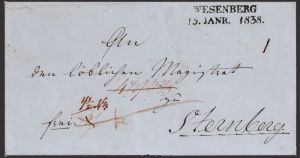 WESENBERG
15. JANR. 1838.
An
den löblichen Magistrat
zu
frei
Sternberg